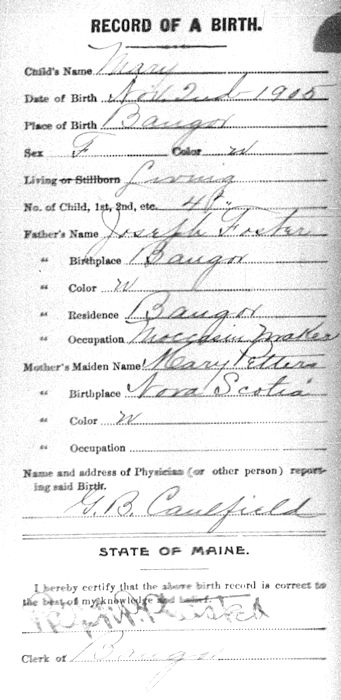 RECORD OF A BIRTH.
Child's Name Mary
Date of Birth Nov. 2nd 1905
Place of Birth Bangor
Sex F Color W
Living or Stillborn Living
No. of Child, 1st, 2nd, etc. 4th
Father's Name Joseph Foster
" Birthplace Bangor
" Color W
" Residence Bangor
" Occupation Moccasin Maker
Mother's Maiden Name Mary Potters
" Birthplace Nova Scotia
" Color W
" Occupation
Name and address of Physician (or other person) report-
ing said Birth.
G. B. Caulfield
STATE OF MAINE.
I hereby certify that the above birth record is correct to
the best of my knowledge and belief.
Clerk of Bangor